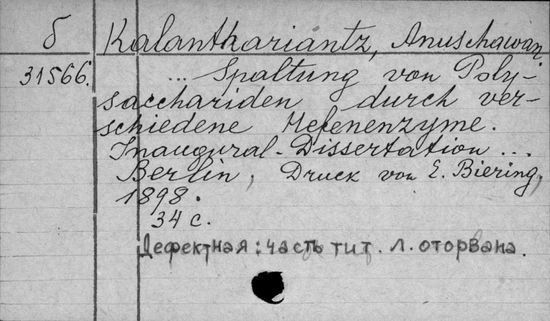 б Kalanthariantz, Anuschawan
31566. ... Spaltung von Poly-
sacchariden durch ver-
schiedene Hefenenzyme.
Inaugural-Dissertation ...
Berlin, Druck von E. Biering,
1898.
34 с.
Дефектная: часть тит. л. оторвана.